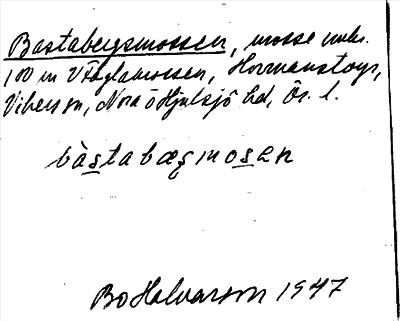 Bastabergsmossen, mosse omkr.
100 m V Fåglamossen, Hormanstorp,
Vikers sn, Nora o Hjulsjö bd, Ör. l.
bàstabæʀmosen
Bo Halvarson 1947